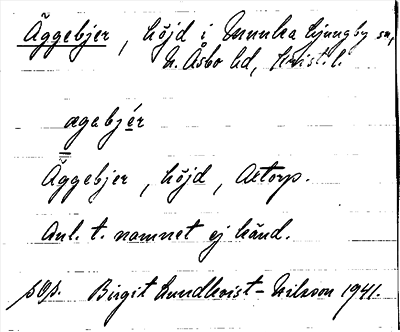 Äggebjer, höjd i Munka Ljungby sn,
N. Åsbo hd, Krist. l.
agabjér
Äggebjer, höjd, Aetorp.
Anl. t. namnet ej känd.
Birgit Lundkvist-Nilsson 1941.